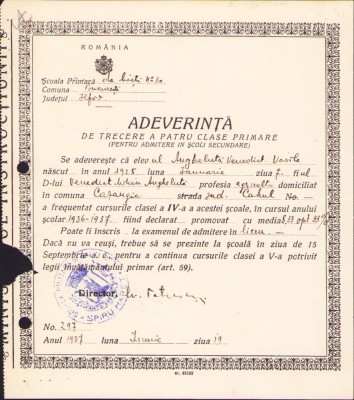 ROMÂNIA
Școala Primară de băeți No. 30
Comuna București
Județul Ilfov
ADEVERINȚĂ
DE TRECERE A PATRU CLASE PRIMARE
(PENTRU ADMITERE IN ȘCOLI SECUNDARE)
Se adeverește că elevul Angheluță Venedict Vasile
născut în anul 1925 luna Ianuarie ziua 7. fiul
D-lui Venedict Angheluță profesia agricultor domiciliat
în comuna strada jud. Cahul No.
a frequentat cursurile clasei a IV-a a acestei școale, în cursul anului
școlar 1936-1937 fiind declarat promovat cu media 8,33 opt 33%
Poate fi înscris la examenul de admitere în liceu
Dacă nu va reuși, trebue să se prezinte la școală în ziua de 15
Septembrie a. c. pentru a continua cursurile clasei a V-a potrivit
legii învățământului primar (art. 59).
Director,
SPIRU
No. 297
Anul 1937 luna Iunie ziua 19